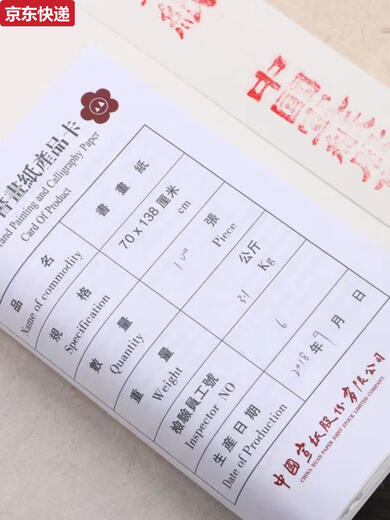 京东快递
書畫紙産品卡
and Painting and Calligraphy Paper
Card Of Product
品 名 書 畫 紙
Name of commodity
規 格 70 x 138 厘米
Specification cm
數 量 100 張
Quantity Piece
重 量 公斤
Weight Kg
檢驗員工號 6
Inspector NO
生産日期 2018 年 9 月 日
Date of Production
中國宣紙股份有限公司
CHINA XUAN PAPER JOINT STOCK LIMITED COMPANY.
中國